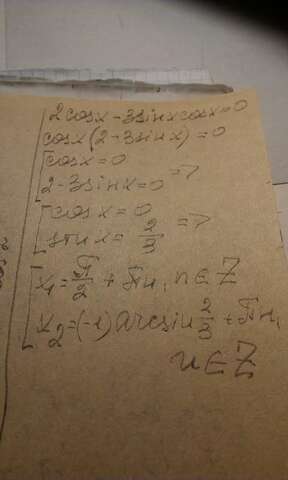 2cosx-3sinxcosx=0
cosx(2-3sinx)=0
cosx=0
2-3sinx=0 =>
cosx=0
sinx=2/3 =>
x₁=π/2+πn, n∈Z
x₂=(-1)arcsin 2/3+πn,
n∈Z